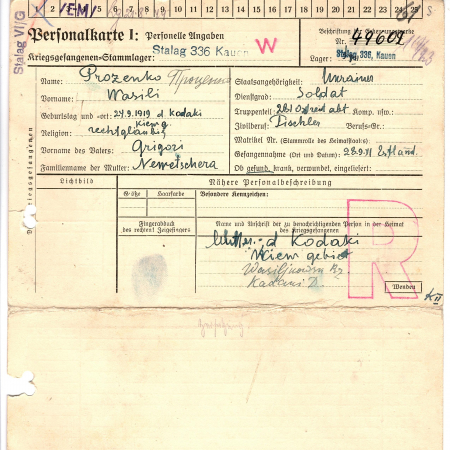 1 2 3 4 5 6 7 8 9 10 11 12 13 14 15 16 17 18 19 20 21 22 23 24 25
Stalag VI/G
VEM
Personalkarte I: Personelle Angaben
Kriegsgefangenen-Stammlager:
Stalag 336 Kauen
W
Beschriftung der Erkennungsmarke
Nr. 44602
Lager: Stalag 336 Kauen
Name: Prozenko
Vorname: Wasili
Geburtstag und -ort: 27.9.1919 d Kodaki
Kiew g.
Religion: rechtgläubig
Vorname des Vaters: Grigori
Familienname der Mutter: Nemetschera
Staatsangehörigkeit: Ukrainer
Dienstgrad: Soldat
Truppenteil: Komp. usw.:
Zivilberuf: Tischler Berufs-Gr.:
Matrikel Nr. (Stammrolle des Heimatstaates)
Gefangennahme (Ort und Datum): 28.9.41 Estland.
Ob gesund, krank, verwundet, eingeliefert:
Lichtbild
Nähere Personalbeschreibung
Größe
Haarfarbe
Besondere Kennzeichen:
Fingerabdruck
des rechten! Zeigefingers
Name und Anschrift der zu benachrichtigenden Person in der Heimat
des Kriegsgefangenen
Mutter: d Kodaki
Kiew gebiet
R
Wenden